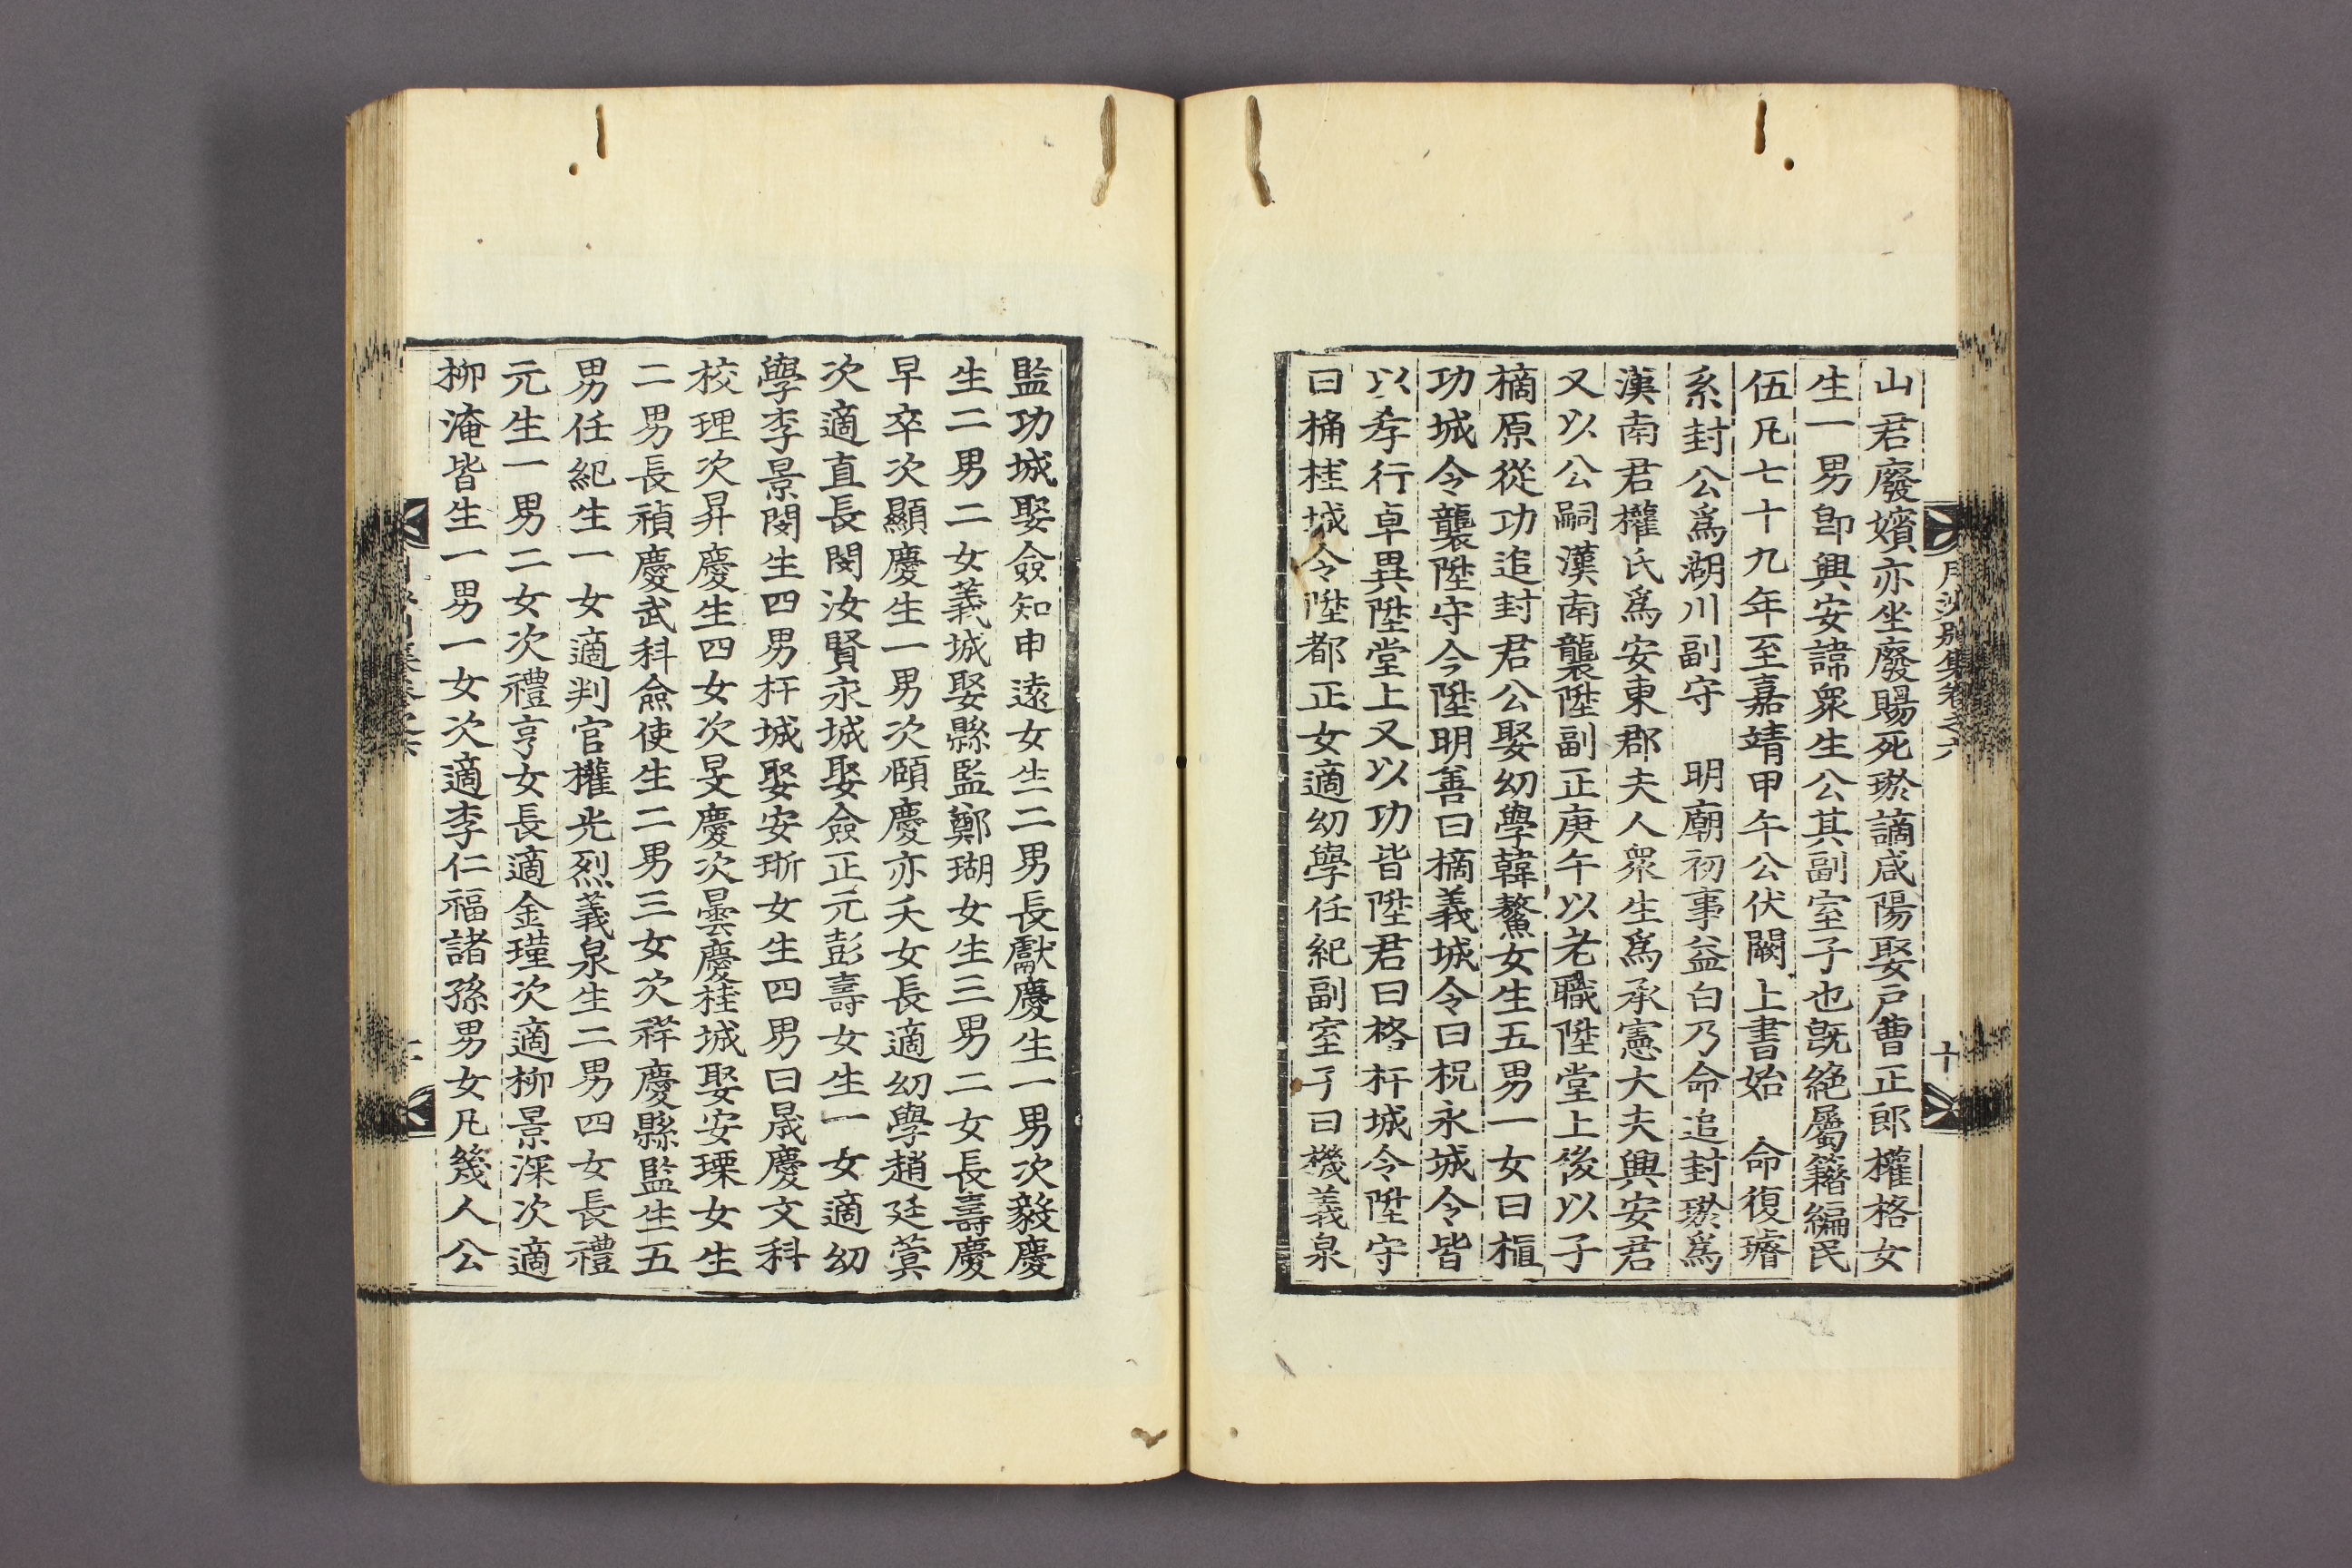 山君廢嬪亦坐廢賜死瑺謫咸陽娶戶曹正郎權格女
生一男卽興安諱衆生公其副室子也旣絶屬籍編民
伍凡七十九年至嘉靖甲午公伏闕上書始 命復璿
系封公爲湖川副守 明廟初事益白乃命追封瑺爲
漢南君權氏爲安東郡夫人衆生爲承憲大夫興安君
又以公嗣漢南襲陞副正庚午以老職陞堂上後以子
樀原從功追封君公娶幼學韓鰲女生五男一女曰樞
功城令襲陞守今陞明善曰樀義城令曰柷永城令皆
以孝行卓異陞堂上又以功皆陞君曰格杆城令陞守
曰桷桂城令陞都正女適幼學任紀副室子曰機義泉
月沙別集卷之六
十
監功城娶僉知申遠女生二男長獻慶生一男次毅慶
生二男二女義城娶縣監鄭瑚女生三男二女長壽慶
早卒次顯慶生一男次頤慶亦夭女長適幼學趙廷蓂
次適直長閔汝賢永城娶僉正元彭壽女生一女適幼
學李景閔生四男杆城娶安斲女生四男曰晟慶文科
校理次昇慶生四女次旻慶次曇慶桂城娶安瑮女生
二男長禎慶武科僉使生二男三女次祥慶縣監生五
男任紀生一女適判官權光烈義泉生二男四女長禮
元生一男二女次禮亨女長適金瑾次適柳景深次適
柳淹皆生一男一女次適李仁福諸孫男女凡幾人公